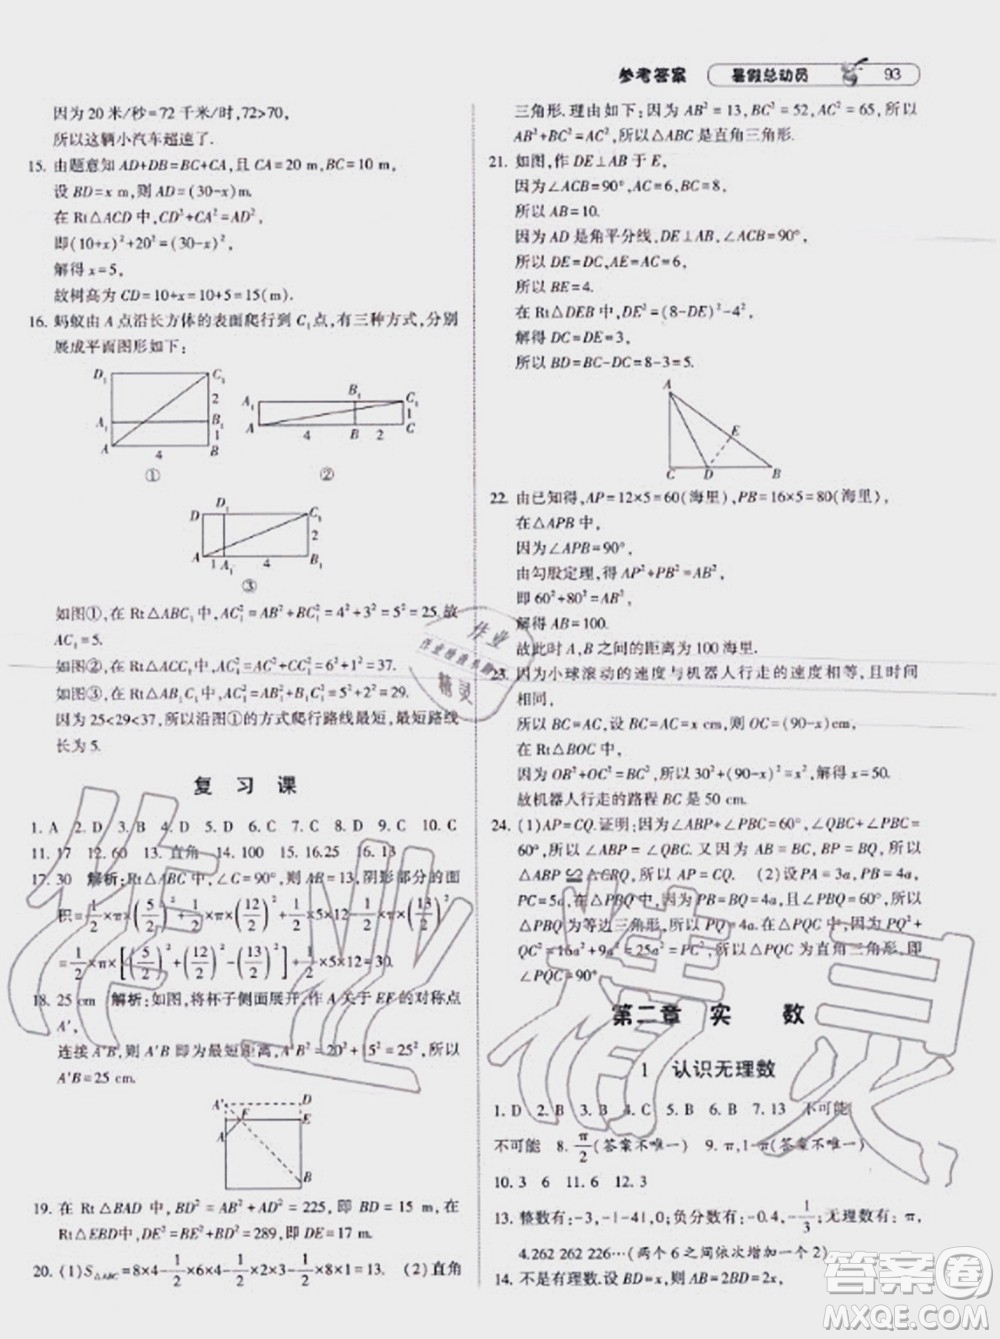 参考答案 暑假总动员 93
因为 20 米/秒=72 千米/时,72>70,
所以这辆小汽车超速了.
15. 由题意知 AD+DB=BC+CA,且 CA=20 m,BC=10 m,
设 BD=x m,则 AD=(30-x)m.
在 Rt△ACD 中,CD²+CA²=AD²,
即(10+x)²+20²=(30-x)²,
解得 x=5,
故树高为 CD=10+x=10+5=15(m).
16. 蚂蚁由 A 点沿长方体的表面爬行到 C₁点,有三种方式,分别
展成平面图形如下:
D₁ C₁ 2 A₁ B₁ 1 A 4 B
①
B₁ A₁ C₁ 1 A 4 B 2 C
②
D D₁ C₁ 2 A 1 A₁ 4 B₁
③
如图①,在 Rt△ABC₁中,AC₁²=AB²+BC₁²=4²+3²=25.故
AC₁=5.
如图②,在 Rt△ACC₁中,AC₁²=AC²+CC₁²=6²+1²=37.
如图③,在 Rt△AB₁C₁中,AC₁²=AB₁²+B₁C₁²=5²+2²=29.
因为 25<29<37,所以沿图①的方式爬行路线最短,最短路线
长为 5.
复 习 课
1. A 2. D 3. B 4. D 5. D 6. C 7. C 8. D 9. C 10. C
11. 17 12. 60 13. 直角 14. 100 15. 16.25 16. 13
17. 30 解析:在 Rt△ABC 中,∠C=90°,则 AB=13,阴影部分的面
积=1/2×π×(5/2)²+1/2×π×(12/2)²+1/2×5×12-1/2×π×(13/2)²
=1/2×π×[(5/2)²+(12/2)²-(13/2)²]+1/2×5×12=30.
18. 25 cm 解析:如图,将杯子侧面展开,作 A 关于 EF 的对称点
A′,
连接 A′B,则 A′B 即为最短距离,
A′B=25 cm.
A′ D F E A B
19. 在 Rt△BAD 中,BD²=AB²+AD²=225,即 BD=15 m,在
Rt△EBD 中,DE²=BD²+BE²=289,即 DE=17 m.
20. (1)S△ABC=8×4-1/2×6×4-1/2×2×3-1/2×8×1=13. (2)直角
三角形.理由如下:因为 AB²=13,BC²=52,AC²=65,所以
AB²+BC²=AC²,所以△ABC 是直角三角形.
21. 如图,作 DE⊥AB 于 E,
因为∠ACB=90°,AC=6,BC=8,
所以 AB=10.
因为 AD 是角平分线,DE⊥AB,∠ACB=90°,
所以 DE=DC,AE=AC=6,
所以 BE=4.
在 Rt△DEB 中,DE²=(8-DE)²-4²,
解得 DE=DC=3,
所以 BD=BC-DC=8-3=5.
A E C D B
22. 由已知得,AP=12×5=60(海里),PB=16×5=80(海里),
在△APB 中,
因为∠APB=90°,
由勾股定理,得 AP²+PB²=AB²,
即 60²+80²=AB²,
解得 AB=100.
故此时 A,B 之间的距离为 100 海里.
23. 因为小球滚动的速度与机器人行走的速度相等,且时间
相同,
所以 BC=AC,设 BC=AC=x cm,则 OC=(90-x)cm.
在 Rt△BOC 中,
因为 OB²+OC²=BC²,所以 30²+(90-x)²=x²,解得 x=50.
故机器人行走的路程 BC 是 50 cm.
24. (1)AP=CQ.证明:因为∠ABP+∠PBC=60°,∠QBC+
∠PBC=60°,所以∠ABP=∠QBC.又因为 AB=BC,BP=BQ,所以
△ABP≌△CBQ,所以 AP=CQ. (2)设 PA=3a,PB=4a,
PC=5a,在△PBQ 中,因为 PB=BQ=4a,且∠PBQ=60°,所以
△PBQ 为等边三角形,所以 PQ=4a.在△PQC 中,因为 PQ²+
QC²=16a²+9a²=25a²=PC²,所以△PQC 为直角三角形,即
∠PQC=90°.
第二章 实 数
1 认识无理数
1. D 2. B 3. B 4. C 5. B 6. B 7. 13 不可能
不可能 8. π/2(答案不唯一) 9. π,1-π(答案不唯一)
10. 3 6 11. 6 12. 3
13. 整数有:-3,-|-4|,0;负分数有:-0.4,-1/3;无理数有:π,
4.262 262 226…(两个 6 之间依次增加一个 2)
14. 不是有理数.设 BD=x,由题意得 AD=2x,
作业
作业检查小助手
精灵
作业精灵
答案圈
MXQE.COM